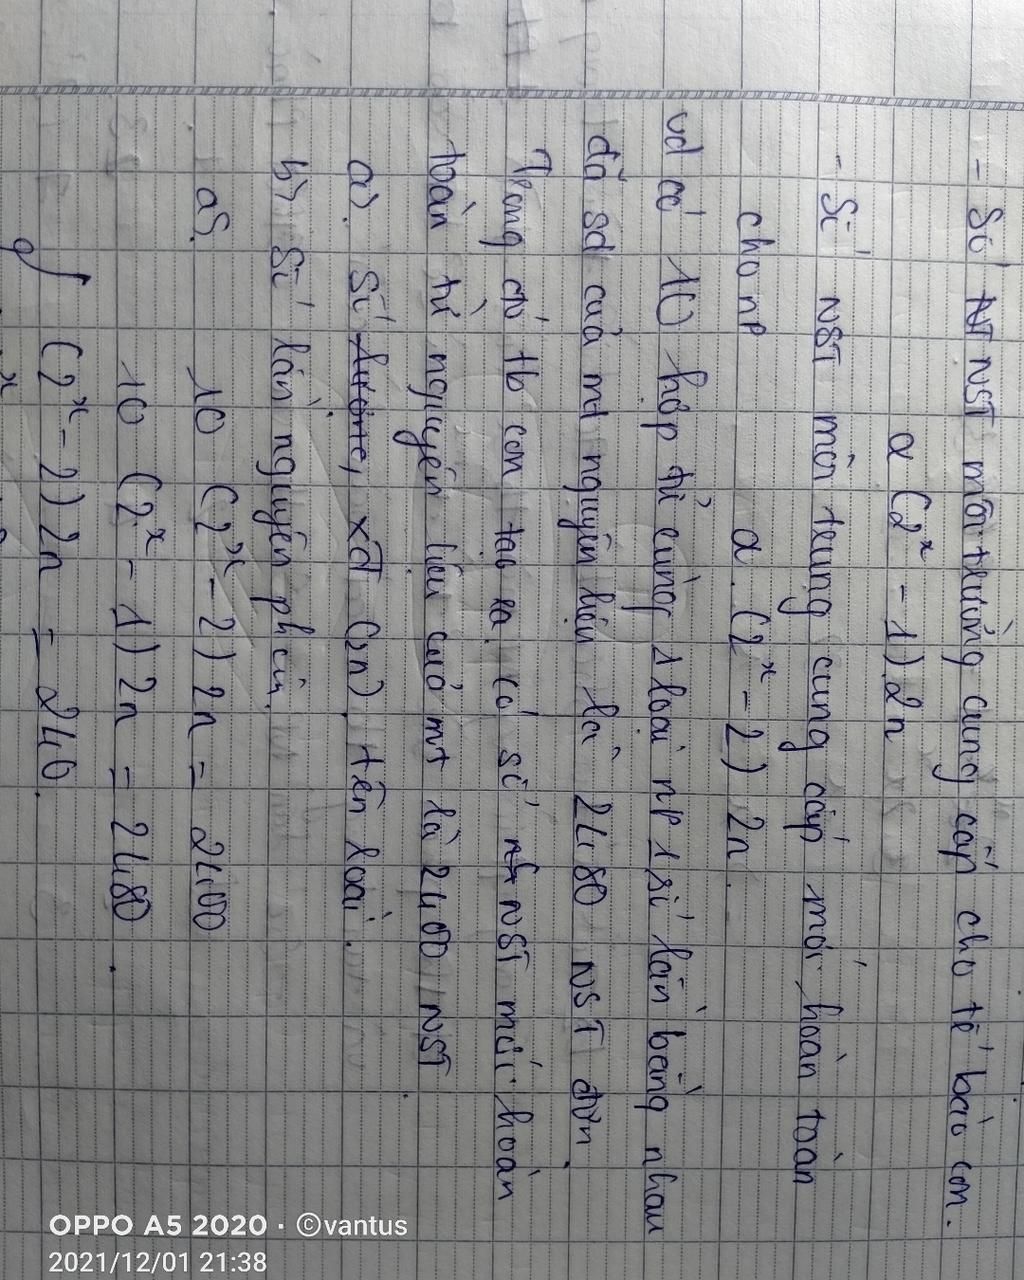 - Số NST môi trường cung cấp cho tế bào con.
a (2ˣ - 1) 2n
- Số NST môi trường cung cấp mới hoàn toàn
cho nP a. (2ˣ - 2) 2n.
vd có 10 hợp tử cùng 1 loài nP 1 số lần bằng nhau
đã sd của mt nguyên liệu là 2480 NST đơn.
Trong đó tb con tạo ra có số NST mới hoàn
toàn từ nguyên liệu của mt là 2400 NST
a). Số xđ (2n). tên loài.
b) Số lần nguyên phân.
a).
10 (2ˣ - 2) 2n = 2400
10 (2ˣ - 1) 2n = 2480.
(2ˣ - 2) 2n = 240.
OPPO A5 2020 · ©vantus
2021/12/01 21:38